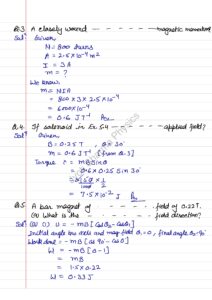 Q.3 A closely wound - - - - - - - magnetic moment?
Solⁿ Given
N = 800 turns
A = 2.5×10⁻⁴ m²
I = 3A
m = ?
We know
m = NIA
= 800 × 3 × 2.5×10⁻⁴
= 6000×10⁻⁴
= 0.6 JT⁻¹ Ans
Q.4 If solenoid in Ex 5.4 - - - - - - applied field?
Solⁿ Given
B = 0.25T θ = 30°
m = 0.6 JT⁻¹ [from Q.3]
Torque τ = mB sinθ
= 0.6 × 0.25 sin 30°
= 7.5×10⁻² J Ans
Q.5 A bar magnet of - - - - - - field of 0.22T.
(a) What is the - - - - - - field direction?
Solⁿ (a) (i) U = -mB [cosθ₂ - cosθ₁]
Initial angle b/w axis and mag field θ₁ = 0°, final angle θ₂ = 90°
Work done = -mB [cos 90° - cos 0°]
W = -mB [0-1]
= mB
= 1.5 × 0.22
W = 0.33 J
Physics